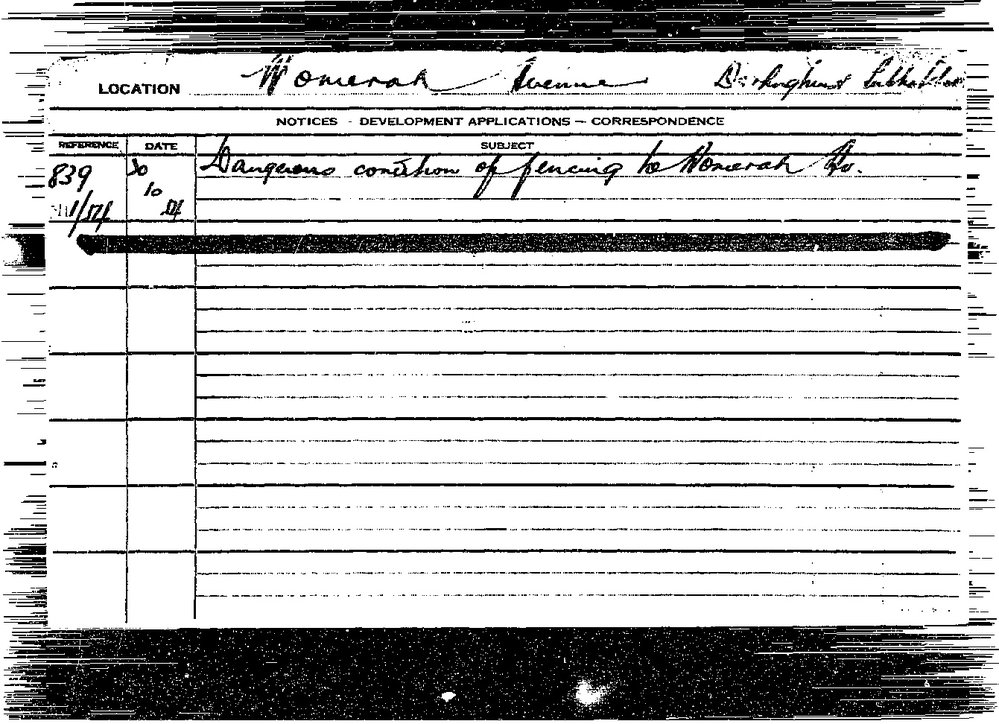 LOCATION Womerah Avenue Darlinghurst
NOTICES - DEVELOPMENT APPLICATIONS - CORRESPONDENCE
REFERENCE DATE SUBJECT
839 30 Dangerous condition of fencing to Womerah Av.
10